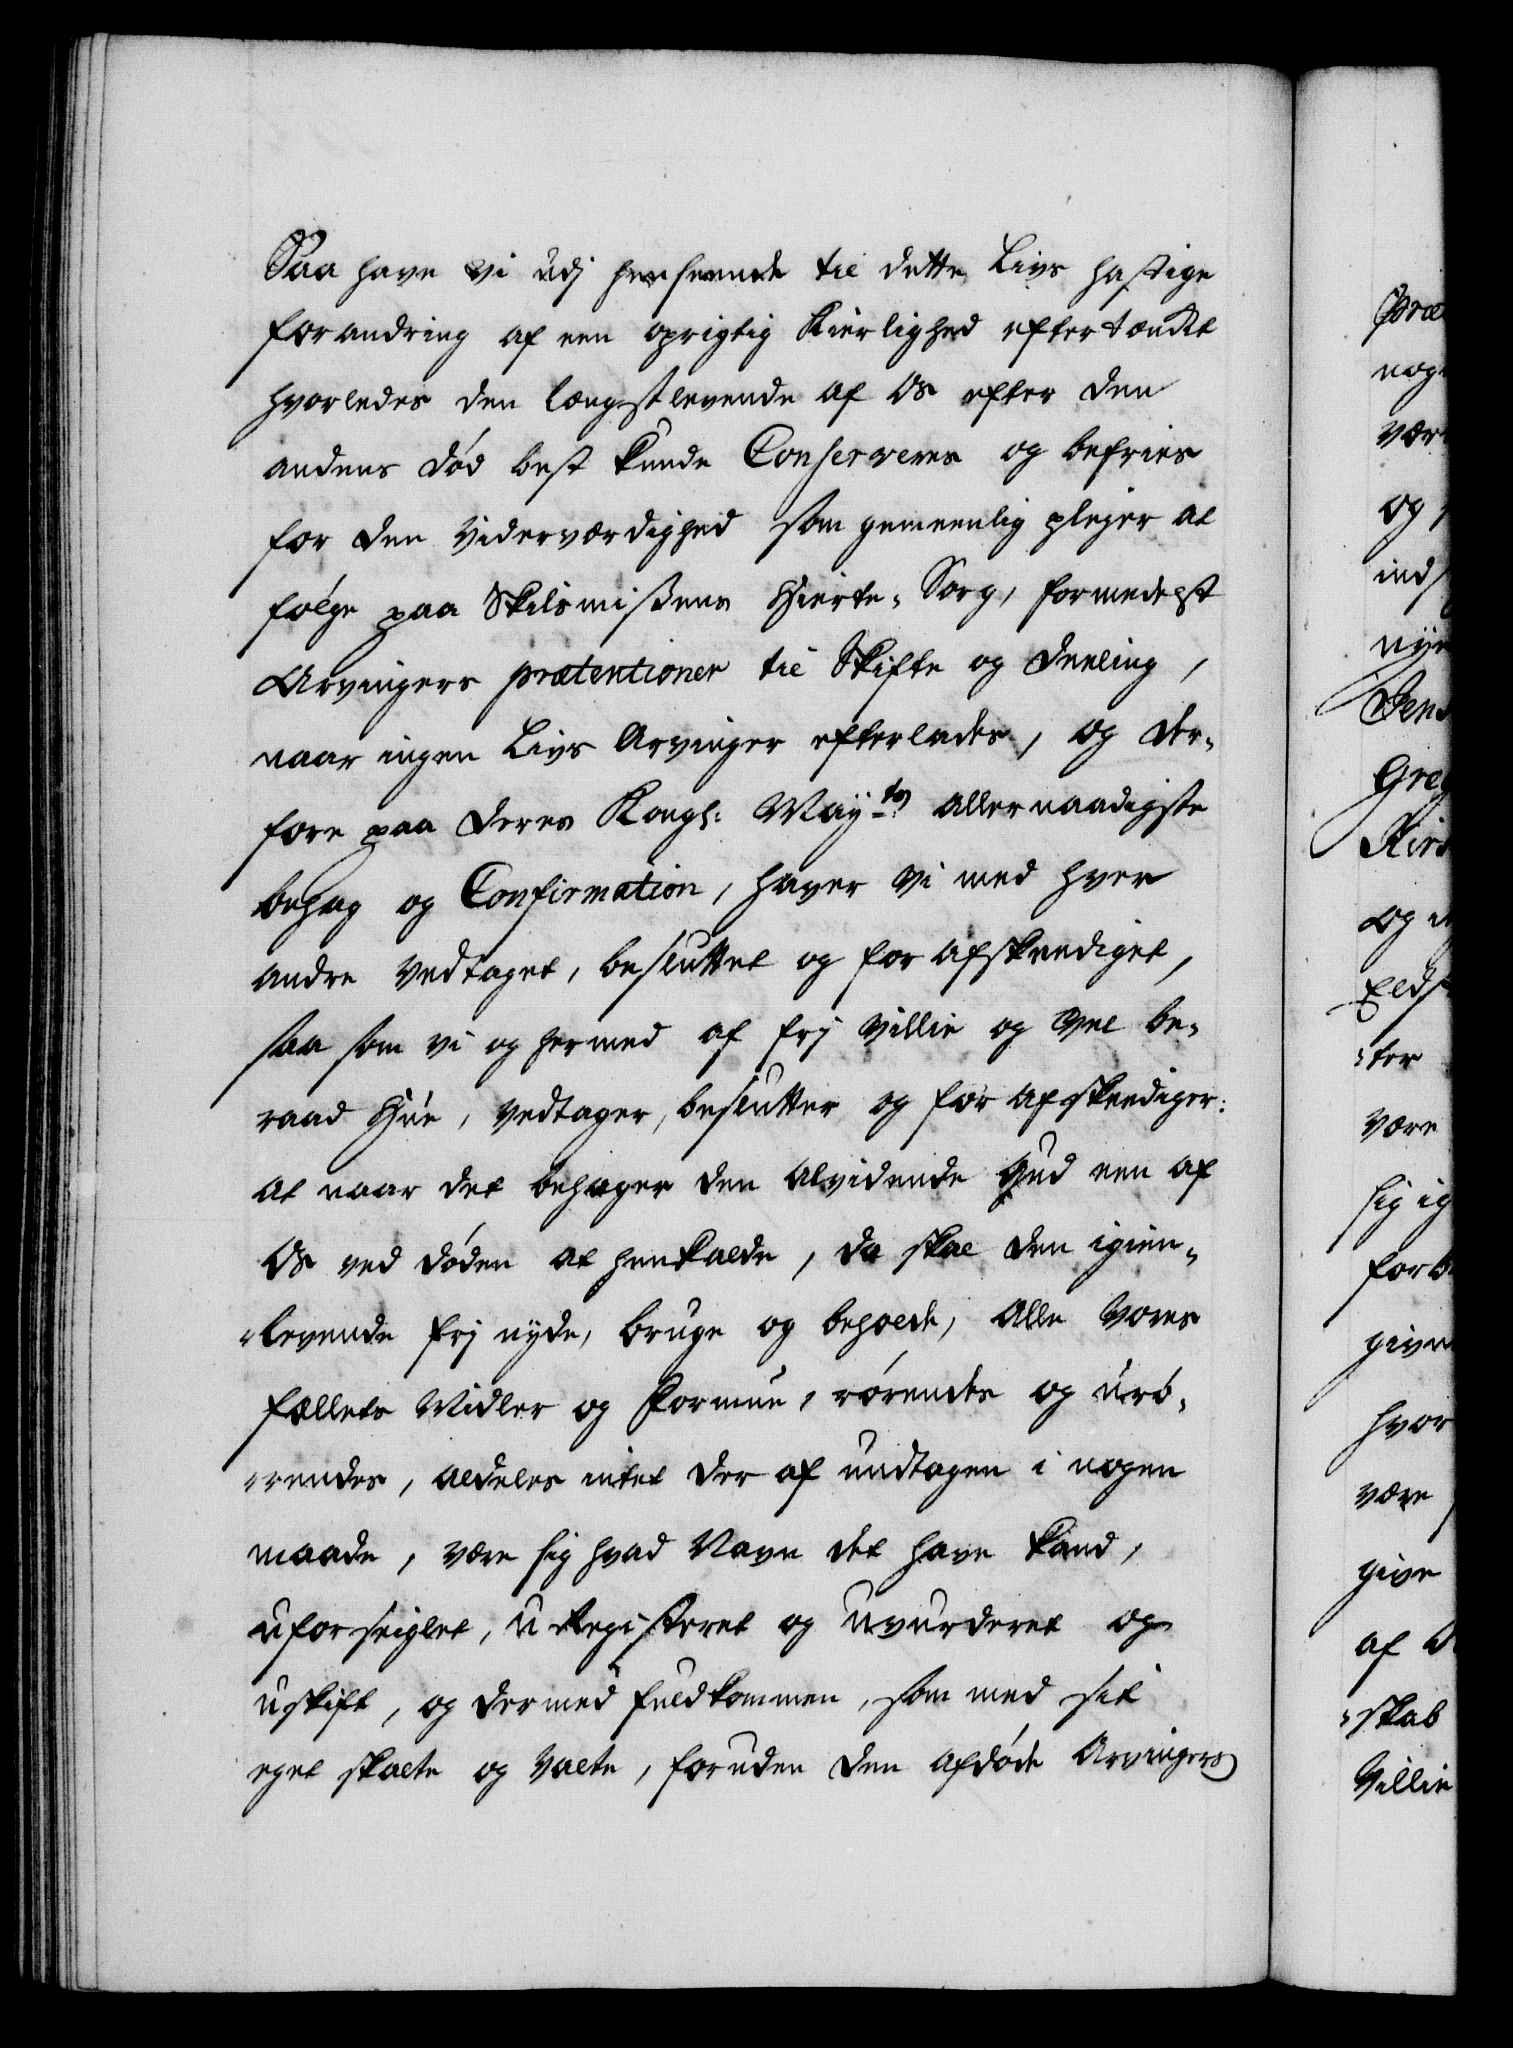 Saa have vi udj henseende til dette Livs hastige
forandring af een oprigtig Kierlighed eftertænckt
hvorledes den længstlevende af Os efter den
andens død best kunde Conserveres og befries
for den Viderværdighed som gemeenlig plejer at
følge paa Skilsmißens Hierte-Sorg, formedelst
Arvingers prætentioner til Skifte og Deeling,
naar ingen Livs Arvinger efterlades, og der-
fore paa Deres Kongl: May:ts allernaadigste
behag og Confirmation, haver vi med hver
andre vedtaget, besluttet og for afskeediget,
saa som vi og hermed af frj Villie og Vel be-
raad Hue, vedtager, beslutter og for afskeediger:
at naar det behager den Alvidende Gud een af
Os ved døden at henkalde, da skal den igien-
-levende frj nyde, bruge og beholde, Alle Vores
fællets Midler og Formue, rørendes og urø-
-rendes, aldeles intet der af undtagen i nogen
maade, være sig hvad Navn det have kand,
uforseiglet, u Registeret og uvurderet og
uskift, og dermed fuldkommen, som med sit
eget skalte og valte, foruden den afdøde Arvingers